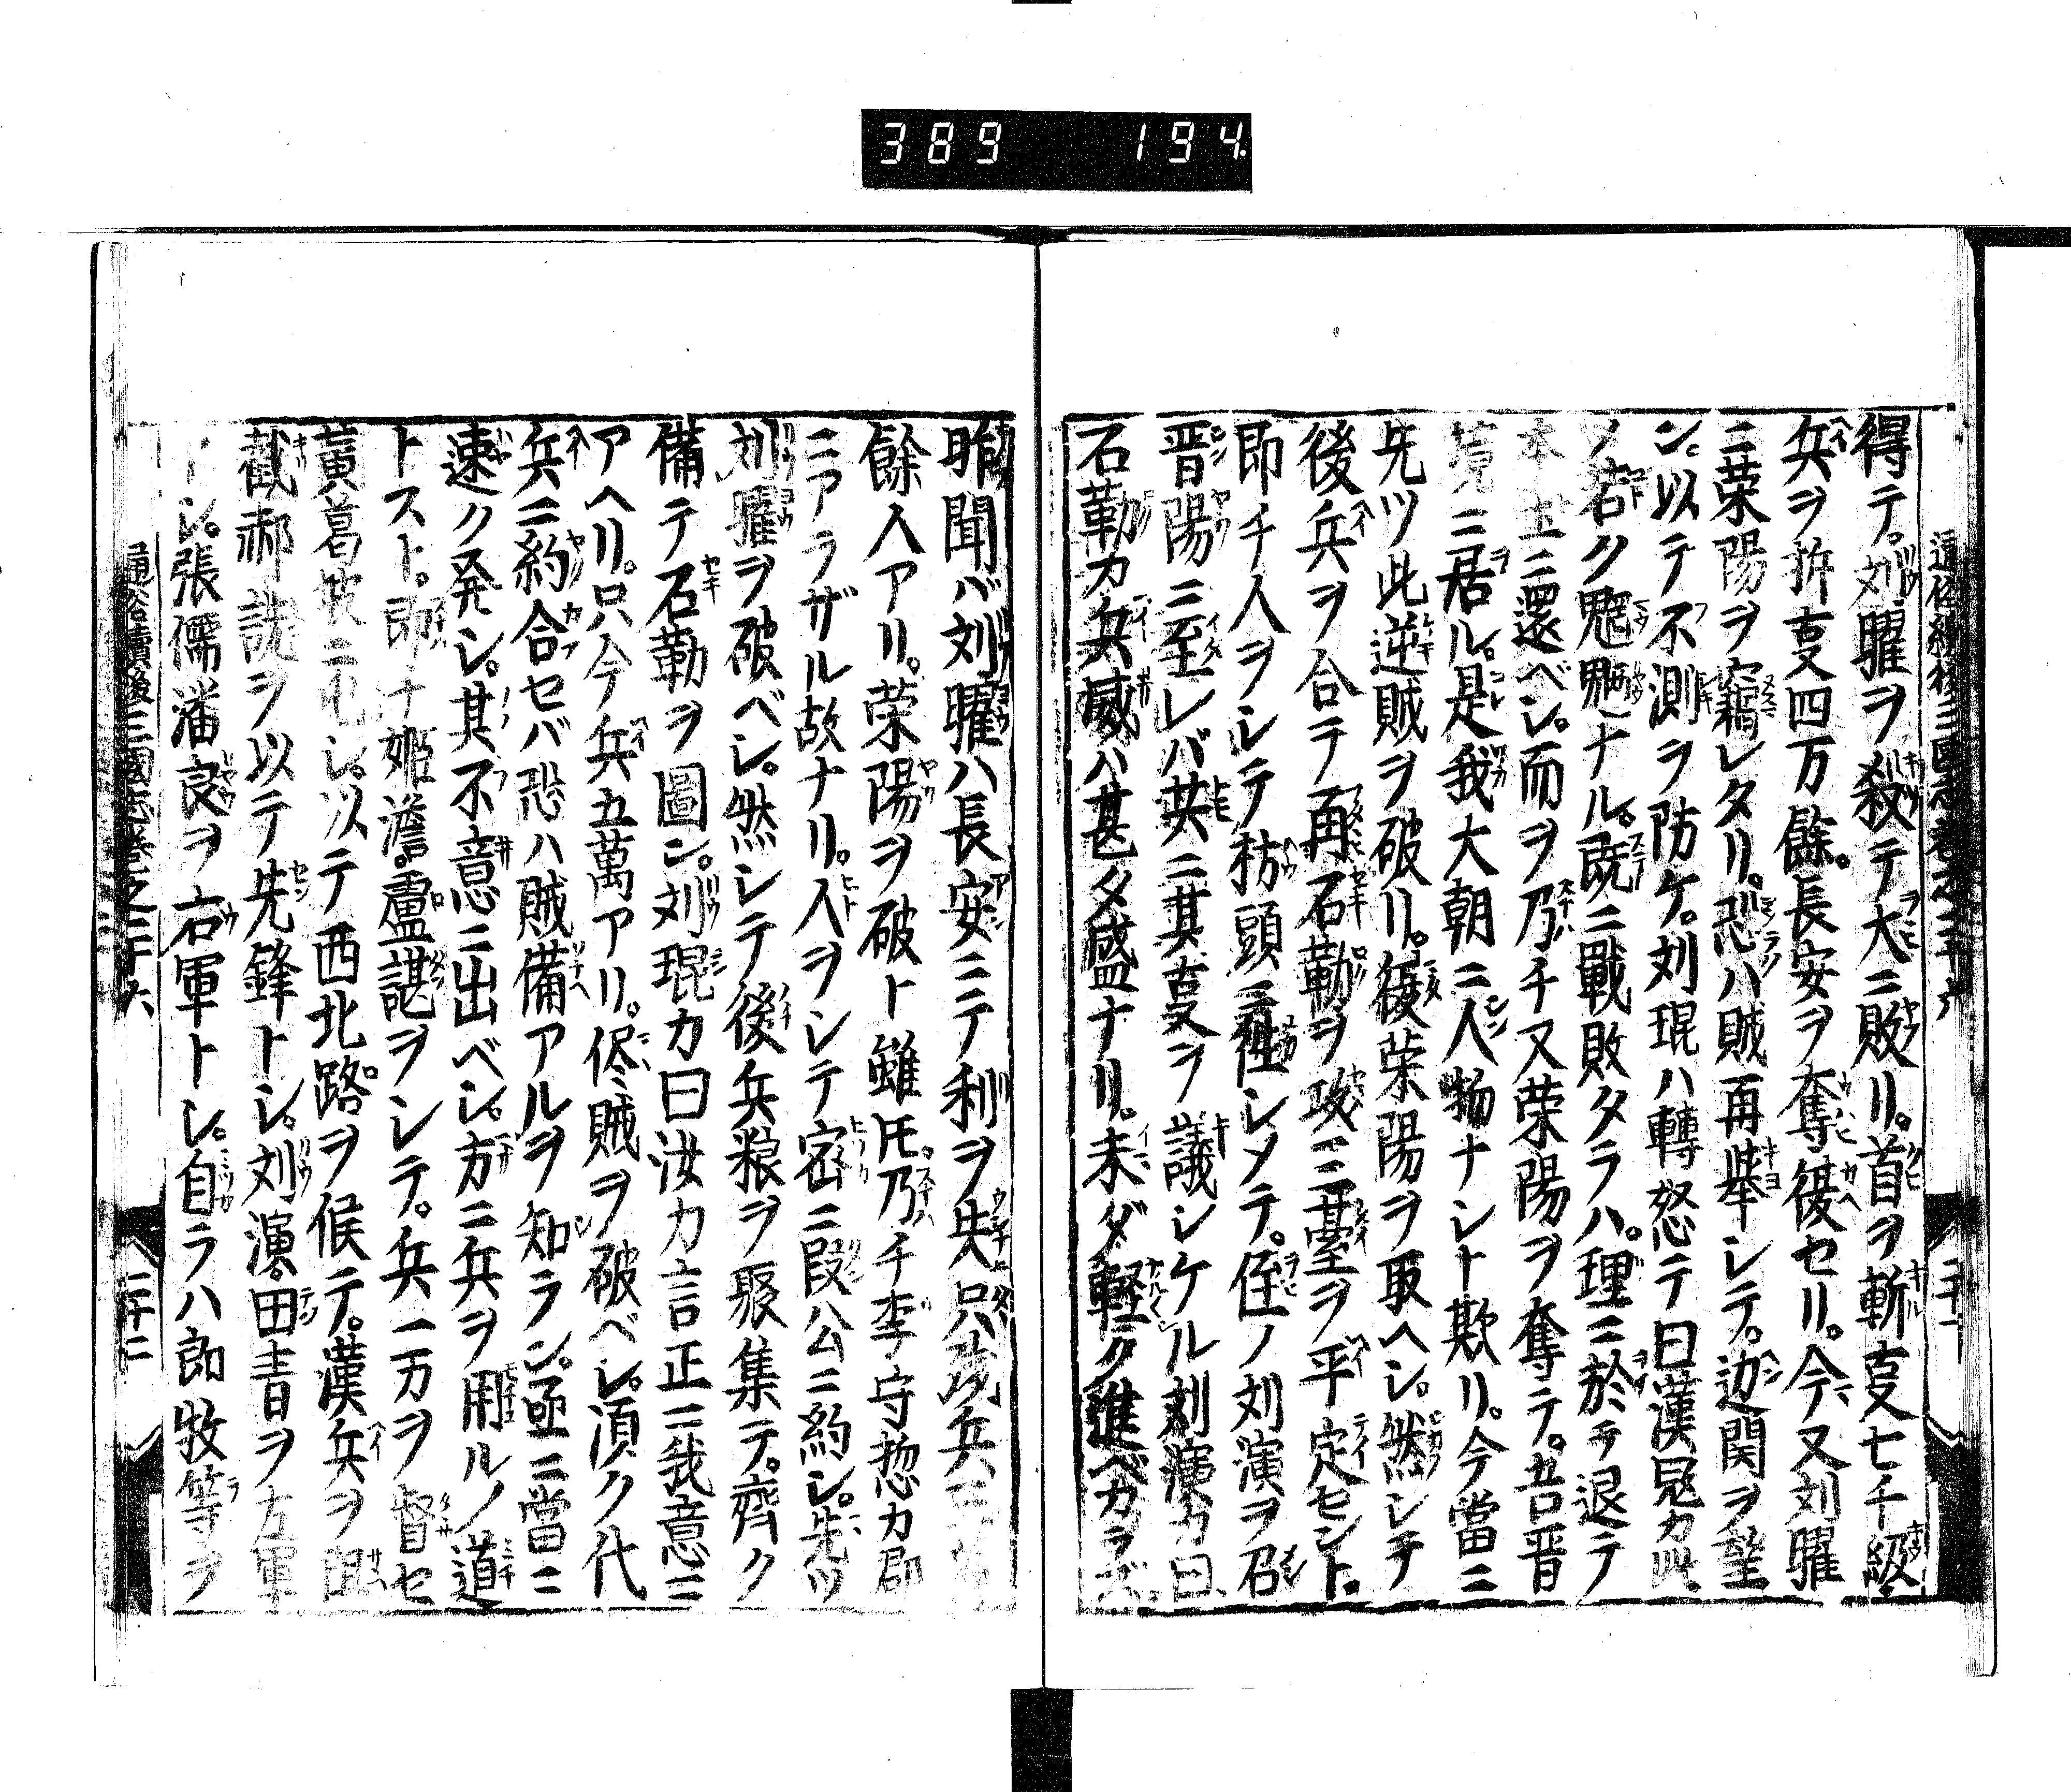 389 194
得テ。刘曜ヲ殺テ大ニ敗リ。首ヲ斬𫝆七千級
兵ヲ折𫝆四万餘。長安ヲ奪復セリ。今又刘曜
ニ荣陽ヲ竊レタリ。恐ハ賊再舉シテ。边関ヲ望
ン。以テ不測ヲ防ケ。刘琨ハ轉怒テ曰漢冦カ
ノ若ク魍魎ナル。既ニ戰敗タラハ。理ニ於テ退テ
本土ニ還ベシ。而ヲ乃チ又荣陽ヲ奪テ。吾晋
境ニ居ル。是我大朝ニ人物ナシト欺リ。今當ニ
先ツ此逆賊ヲ破リ。復荣陽ヲ取ヘシ。然シテ
後兵ヲ合テ再石勒ヲ攻三臺ヲ平定セント。
即チ人ヲシテ枋頭ニ徃シメテ。侄ノ刘演ヲ召
晋陽ニ至レバ共ニ其𫝆ヲ議シケル刘演カ曰
石勒カ兵威ハ甚タ盛ナリ。未ダ軽ク進ベカラズ
聞バ刘曜ハ長安ニテ利ヲ失只残兵
餘人アリ。荣陽ヲ破ト雖𪜈。乃チ李守惣カ郡
ニアラザル故ナリ。人ヲシテ密ニ段公ニ約シ。先ツ
刘曜ヲ破ベシ。然シテ後兵粮ヲ聚集テ。齊ク
備テ石勒ヲ圖ン。刘琨カ曰汝カ言正ニ我意ニ
アヘリ。只今兵五萬アリ。侭賊ヲ破ベシ。湏ク代
兵ニ約合セバ恐ハ賊備アルヲ知ラン。亟ニ當ニ
速ク発シ。其不意ニ出ベシ。方ニ兵ヲ用ルノ道
トスト。即ナ姫澹。盧諶ヲシテ。兵一万ヲ督セ
黄葛坡ニ屯シ。以テ西北路ヲ候テ。漢兵ヲ阻
截郝詵ヲ以テ先鋒トシ。刘演。田青ヲ左軍
トシ。張儒潘良ヲ右軍トシ。自ラハ郎牧等ヲ
通俗續後三國志巻之二十六 二十二